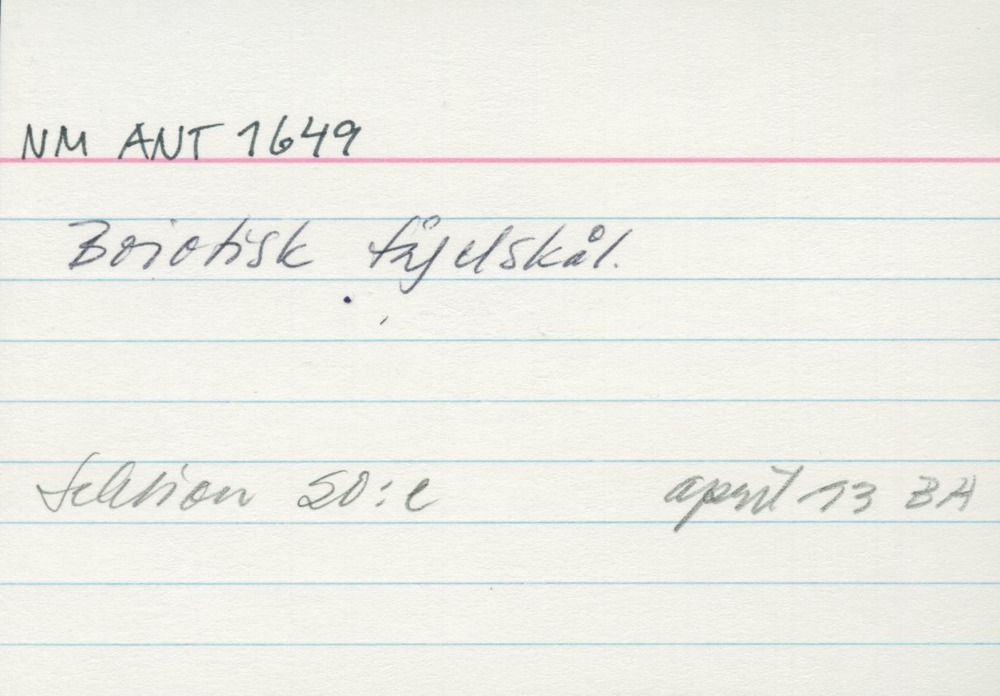 NM ANT 1649
Boiotisk fågelskål.
Sektion 50:e april 13 BH